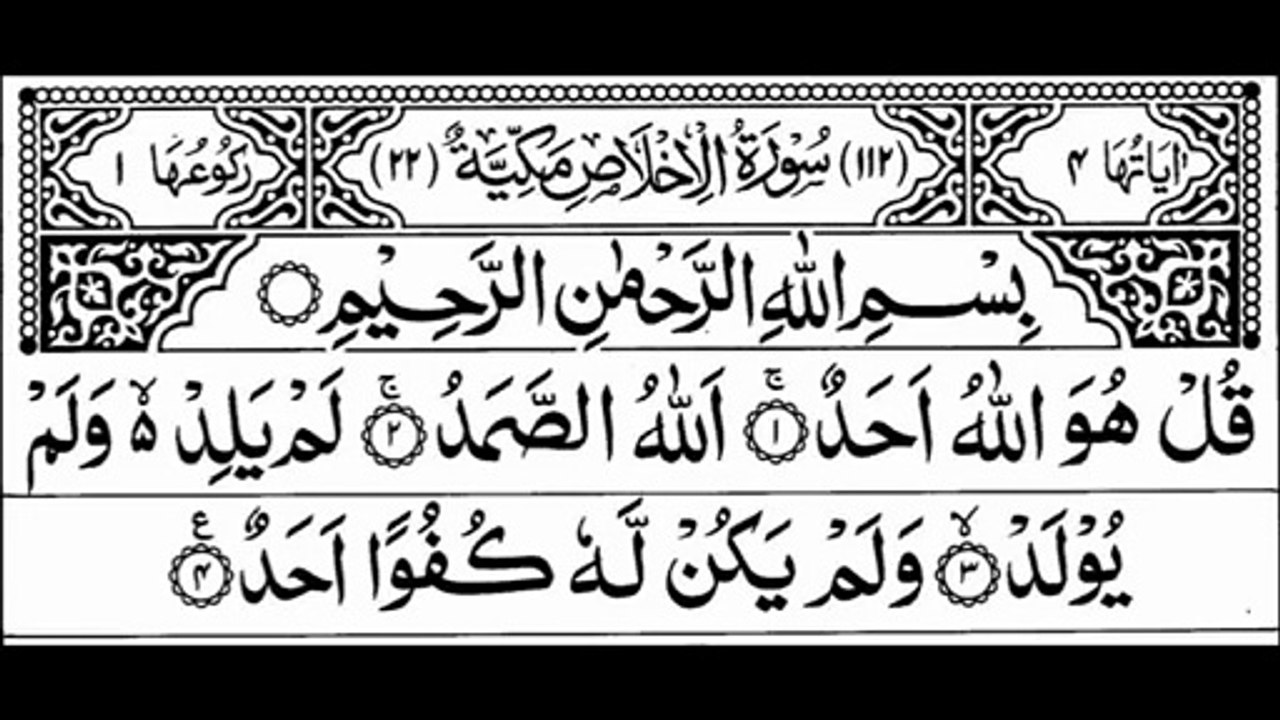 اٰيَاتُهَا ۴ (۱۱۲) سُوْرَةُ الْاِخْلَاصِ مَكِّيَّةٌ (۲۲) رُكُوْعُهَا ۱
بِسْمِ اللّٰهِ الرَّحْمٰنِ الرَّحِيْمِ ۝
قُلْ هُوَ اللّٰهُ اَحَدٌ ۚ‏﴿۱﴾ اَللّٰهُ الصَّمَدُ ۚ‏﴿۲﴾ لَمْ يَلِدْ ۙ۬ وَلَمْ
يُوْلَدْ ۙ‏﴿۳﴾ وَلَمْ يَكُنْ لَّهٗ كُفُوًا اَحَدٌ ﴿۴﴾ ع